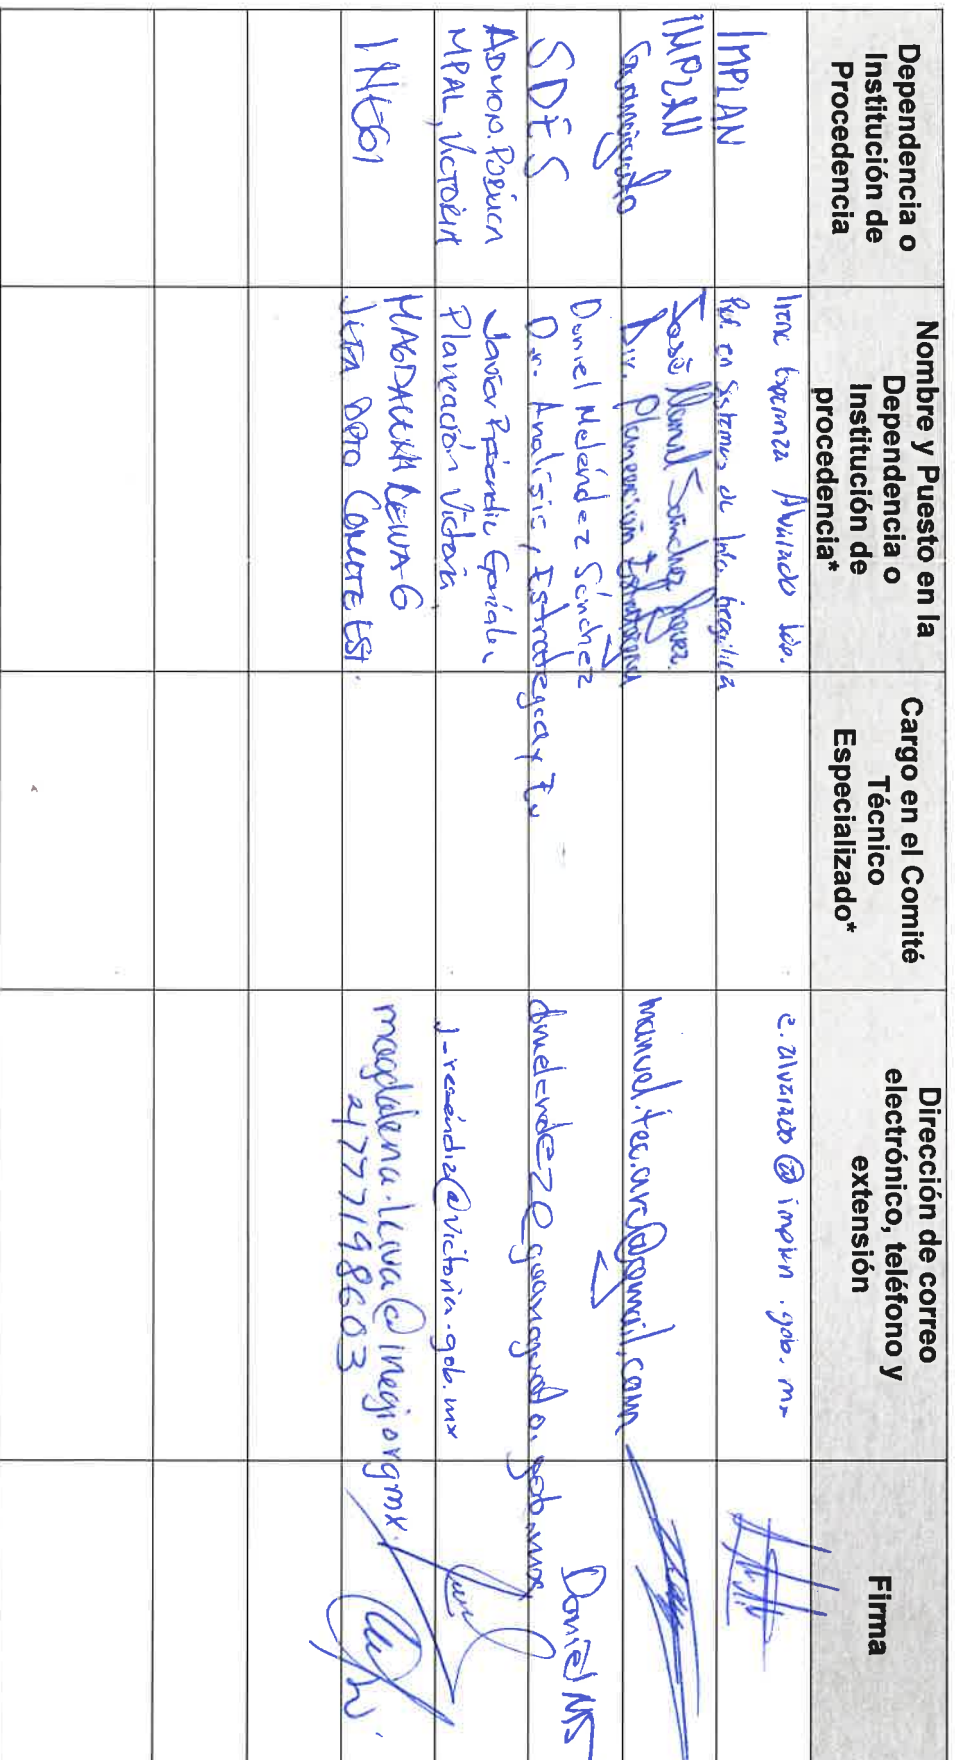 Dependencia o
Institución de
Procedencia
Nombre y Puesto en la
Dependencia o
Institución de
procedencia*
Cargo en el Comité
Técnico
Especializado*
Dirección de correo
electrónico, teléfono y
extensión
Firma
IMPLAN
Irene Esperanza Alvarado
Prof. en Sistemas de Info.
e.alvarado@implan.gob.mx
IMPLAN
Guanajuato
José Manuel Sánchez
Dir. Planeación Estratégica
manuel.tec.arc@gmail.com
SDES
Daniel Meléndez Sánchez
Dir. Analisis, Estrategia y Ev
dmelendez@guanajuato.gob.mx
Daniel MS
ADMON. PÚBLICA
MPAL, VICTORIA
Javier Reséndiz González
Planeación Victoria
j-resendiz@victoria.gob.mx
INEGI
MAGDALENA LEIVA G
JEFA DPTO
magdalena.leiva@inegi.org.mx.
4777198603